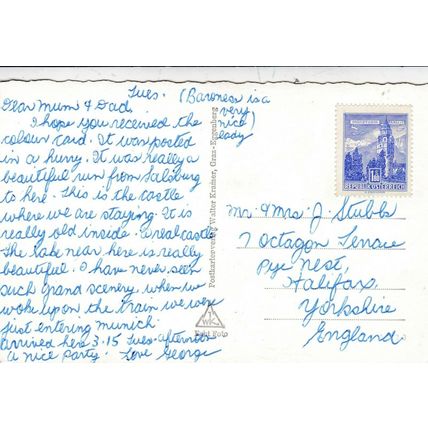 Tues. (Baroness is a
very
nice
lady)
Dear Mum & Dad.
I hope you received the
colour card. It was posted
in a hurry. It was really a
beautiful run from Salsburg
to here. This is the castle
where we are staying. It is
really old inside. A real castle
The lake near here is really
beautiful. I have never seen
such grand scenery. When we
woke up on the train we were
just entering Munich
arrived here 3.15 Tues. afternoon
a nice party. Love George
Postkartenverlag Walter Kramer, Graz-Eggenberg
WK
Echt Foto
REPUBLIK ÖSTERREICH
Mr & Mrs J. Stubbs
7 Octagon Terrace
Pye Nest,
Halifax
Yorkshire
England.